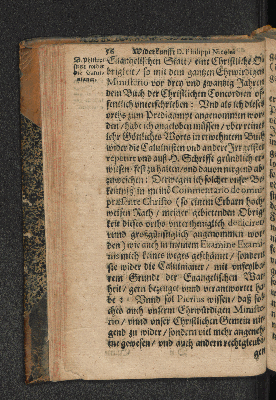 56 Widerkunfft D. Philippi Nicolai
Evangelischen Statt / eine Christliche O-
brigkeit / so mit dem gantzen Ehrwürdigen
Ministerio vor drey und zwantzig Jahren
dem Buch der Christlichen Concordien of-
fentlich unterschrieben: Und als ich dieses
orths zum Predigampt angenommen wor-
den / hab ich angeloben müssen / uber reine
Göttliches Worts in
wider die Calvinisten und andere Irrgeister
und auß H. Schrifft gründlich er-
wiesen / fest zu halten / und davon nirgend ab-
zuweichen: Derwegen ich solcher unser Be-
kentniß in meine Commentario de omni-
præsente Christo (so einem Erbarn hoch-
weisen Rath / meiner gebietenden Obrig-
keit dieses orths unterthäniglich dediciret /
unnd großgünstiglich angenommen wor-
den) wie auch in meinem Examine
mich keines weges geschämet / sondern
sie wider die Calvinianer / mit
rem Grunde der Evangelischen War-
heit / gern bezeuget unnd verantwortet ha-
be: Unnd sol Pierius wissen / daß sol-
ches auch unserm Ehrwürdigen Ministe-
rio / unnd unser Christlichen Gemein
gend zu wider / sondern viel mehr angeneh-
me gewesen / und auch andern rechtgleubi-
gen